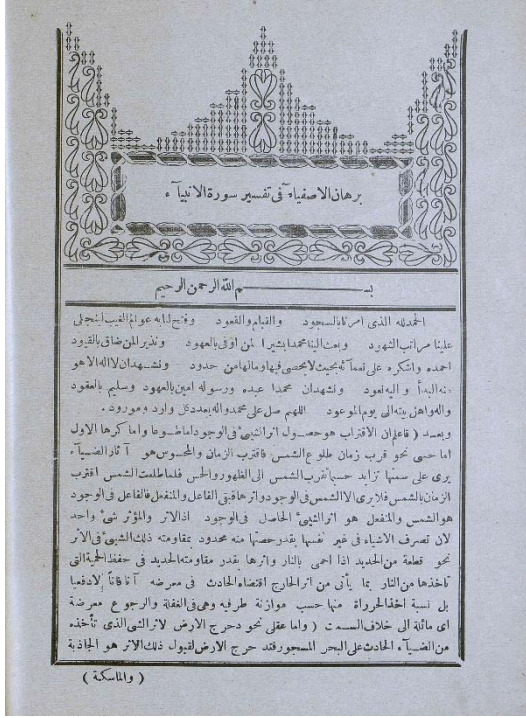 برهان الاصفياء فى تفسير سورة الانبيآء
بسم الله الرحمن الرحيم
الحمد لله الذى امرنا بالسجود والقيام والقعود وفتح لنا به عوالم الغيب لينجلى
علينا مراتب الشهود وبعث الينا محمدا بشيرا لمن اوفى بالعهود ونذير لمن ضاق بالقيود
احمده واشكره على نعمآئه بحيث لا يحصى فيها ومالها من حدود ونشهد ان لااله الاهو
منه البدأ واليه نعود ونشهد ان محمدا عبده ورسوله امين بالعهود وسليم بالعقود
واله واهل بيته الى يوم الموعود اللهم صل على محمد واله بعدد كل وارد ومورود .
وبعد ( فاعلم ان الاقتراب هو حصول اثر الشئ فى الوجود اما طوعا واما كرها الاول
اما حسى نحو قرب زمان طلوع الشمس فاقترب الزمان والمحسوس هو آثار الضيآء
يرى على سمتها تزايد حسبما تقرب الشمس الى الظهور والحس فلما طلعت الشمس اقترب
الزمان بالشمس فلا يرى الا الشمس فى الوجود واثرها فبقى الفاعل والمنفعل فالفاعل فى الوجود
هو الشمس والمنفعل هو اثر الشئ الحاصل فى الوجود اذ الاثر والمؤثر شئ واحد
لان تصرف الاشياء فى غير نفسها بقدر حصتها منه محدود بمقاومته ذلك الشئ فى الاثر
نحو قطعة من الحديد اذا احمى بالنار واثرها بقدر مقاومته الحديد فى حفظ الحمية التى
تاخذها من النار بما يأتى من اثر الخارج اقتضاء الحادث فى معرضه آنا فانا لا دفعيا
بل نسبة اخذ الحرواة منها حسب موازنة طرفيه وهى فى الغفلة والرجوع معرضة
اى مائلة الى خلاف السمت ( واما عقلى نحو دحرج الارض لاثر الشئ الذى تأخذه
من الضيآء الحادث على البحر المسجور فتد حرج الارض لقبول ذلك الاثر هو الجاذبة
( والماسكة )